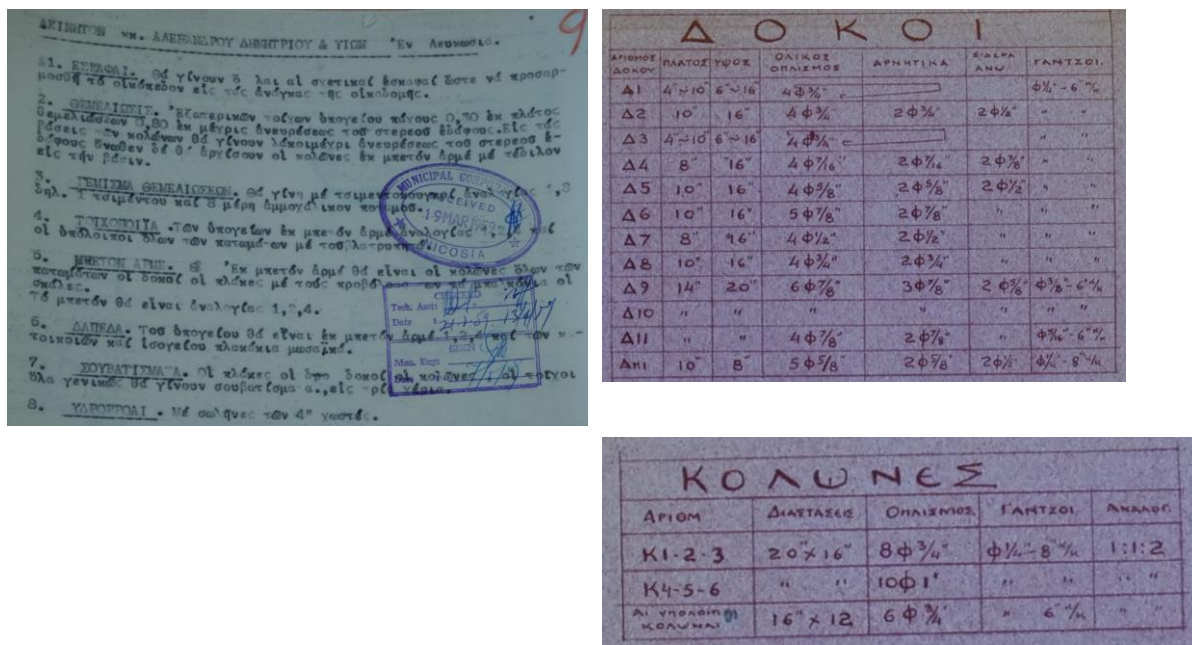 ΑΚΙΝΗΤΟΝ κκ. ΑΛΕΞΑΝΔΡΟΥ ΔΗΜΗΤΡΙΟΥ & ΥΙΩΝ Ἐν Λευκωσίᾳ.
9
1. ΕΣΚΑΦΑΙ. Θά γίνουν ὅ λαι αἱ σχετικαί ἐσκαφαί ὥστε νά προσαρ-
μοσθῇ τό οἰκόπεδον εἰς τάς ἀνάγκας τῆς οἰκοδομῆς.
2. ΘΕΜΕΛΙΩΣΙΣ. Ἐξωτερικῶν τοίχων ὑπογείου πάχους 0,30 ἐκ πλάτος
θεμελιώσεων 0,80 ἐκ μέχρις ἀνευρέσεως τοῦ στερεοῦ ἐδάφους. Εἰς τάς
βάσεις τῶν κολώνων θά γίνουν λάκοι μέχρι ἀνευρέσεως τοῦ στερεοῦ ἐ-
δάφους ἄνωθεν δέ θ' ἀρχίσουν οἱ κολῶνες ἐκ μπετόν ἀρμέ μέ πέδιλον
εἰς τήν βάσιν.
3. ΓΕΜΙΣΜΑ ΘΕΜΕΛΙΩΣΕΩΝ. Θά γίνῃ μέ τσιμεντοκογκρί ἀναλογίας 1,8
δηλ. 1 τσιμέντου καί 8 μέρη ἀμμοχάλικον ποταμοῦ.
4. ΤΟΙΧΟΠΟΙΪΑ. Τῶν ὑπογείων ἐκ μπετόν ἀρμέ ἀναλογίας 1,2,4 καί
οἱ ὑπόλοιποι ὅλων τῶν πατωμάτων μέ τοῦβλα τρυπητά.
5. ΜΠΕΤΟΝ ΑΡΜΕ. Ἐκ μπετόν ἀρμέ θά εἶναι οἱ κολῶνες ὅλων τῶν
πατωμάτων οἱ δοκοί οἱ πλάκες μέ τούς προβόλους των τά μπαλκόνια οἱ
σκάλες.
Τό μπετόν θά εἶναι ἀναλογίας 1,2,4.
6. ΔΑΠΕΔΑ. Τοῦ ὑπογείου θά εἶναι ἐκ μπετόν ἀρμέ 1,2,4 καί τῶν κα-
τοικιῶν καί ἰσογείου πλακάκια μωσαϊκά.
7. ΣΟΥΒΑΤΙΣΜΑΤΑ. Οἱ πλάκες οἱ δοκοί οἱ κολῶνες, οἱ τοῖχοι
ὅλα γενικῶς θά γίνουν σουβατίσματα, εἰς τρία χέρια.
8. ΥΔΡΟΡΡΟΑΙ. Μέ σωλῆνες τῶν 4" χωστές.
MUNICIPAL CORPORATION
RECEIVED
19 MAR 1959
NICOSIA
CHECKED
Tech. Asst:
Date 21-1-59
SEEN
Mun. Engr
ΔΟΚΟΙ
ΑΡΙΘΜΟΣ ΔΟΚΟΥ ΠΛΑΤΟΣ ΥΨΟΣ ΟΛΙΚΟΣ ΟΠΛΙΣΜΟΣ ΑΡΝΗΤΙΚΑ ΣΙΔΕΡΑ ΑΝΩ ΓΑΝΤΖΟΙ.
Δ1 4"~10" 6"~16" 4φ¾" φ¼"-6"
Δ2 10" 16" 4φ¾" 2φ¾" 2φ½" " "
Δ3 4"~10" 6"~16" 4φ¾" " "
Δ4 8" 16" 4φ7/16" 2φ7/16" 2φ3/8" " "
Δ5 10" 16" 4φ5/8" 2φ5/8" 2φ½" " "
Δ6 10" 16" 5φ7/8" 2φ7/8" " " "
Δ7 8" 16" 4φ½" 2φ½" " " "
Δ8 10" 16" 4φ¾" 2φ¾" " " "
Δ9 14" 20" 6φ7/8" 3φ7/8" 2φ5/8" φ3/8"-6"
Δ10 " " " " " " "
Δ11 " " 4φ7/8" 2φ7/8" " φ5/16"-6"
ΔΠ1 10" 8" 5φ5/8" 2φ5/8" 2φ½" φ¼"-8"
ΚΟΛΩΝΕΣ
ΑΡΙΘΜ ΔΙΑΣΤΑΣΕΙΣ ΟΠΛΙΣΜΟΣ ΓΑΝΤΖΟΙ. ΑΝΑΛΟΓ.
Κ1-2-3 20"×16" 8φ¾" φ¼"-8" 1:1:2
Κ4-5-6 " " 10φ1" " " " "
ΑΙ ΥΠΟΛΟΙΠΟΙ
ΚΟΛΩΝΑΙ 16"×12 6φ¾" " 6" " "